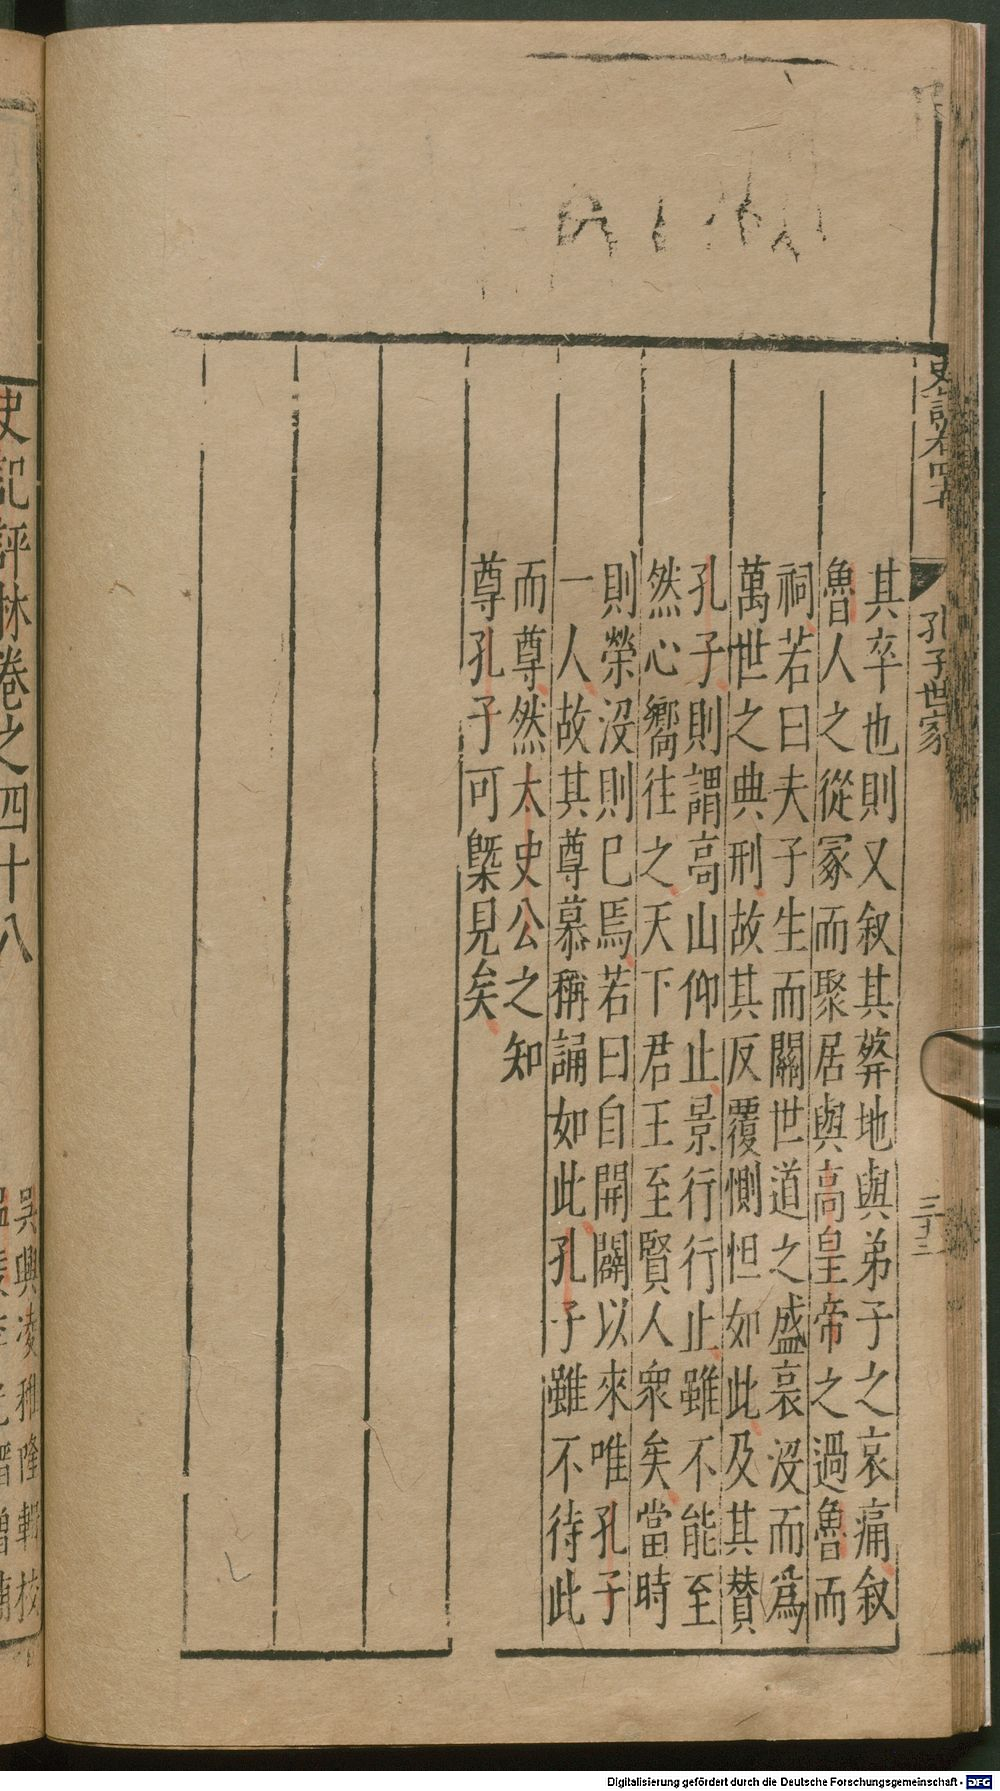 孔子世家
三十三
其卒也則又叙其葬地與弟子之哀痛叙
魯人之從冢而聚居與高皇帝之過魯而
祠若曰夫子生而關世道之盛衰沒而爲
萬世之典刑故其反覆惻怛如此及其贊
孔子則謂高山仰止景行行止雖不能至
然心嚮往之天下君王至賢人眾矣當時
則榮沒則已焉若曰自開闢以來唯孔子
一人故其尊慕稱誦如此孔子雖不待此
而尊然太史公之知
尊孔子可槩見矣
史記評林卷之四十八
吳興凌稚隆輯校
Digitalisierung gefördert durch die Deutsche Forschungsgemeinschaft - DFG